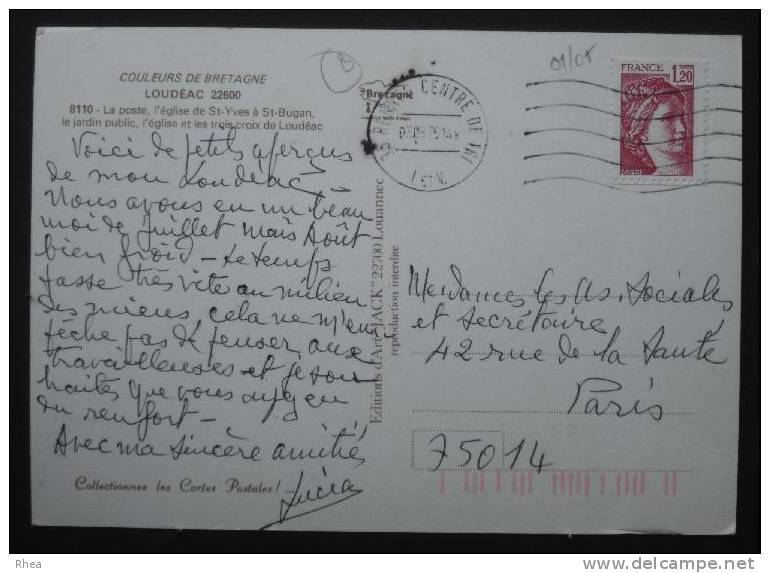 COULEURS DE BRETAGNE
LOUDÉAC 22600
8110 - La poste, l'église de St-Yves à St-Bugan,
le jardin public, l'église et les trois croix de Loudéac
Voici de petits aperçus
de mon Loudéac
Nous avons eu un beau
moi de Juillet mais Août
bien froid - Le temps
passe très vite au milieu
des miens, cela ne m'em
pêche pas de penser aux
travailleuses et je sou
haites que vous ayez eu
du renfort -
Avec ma sincère amitié
Lucia
Collectionnez les Cartes Postales!
Editions d'Art "JACK" 22700 Louannec
reproduction interdite
B
Bretagne
CENTRE DE TRI
01/05
FRANCE
1,20
Mesdames les As. Sociales
et Secrétaire
42 rue de la Santé
Paris
75014
Rhea
www.delcampe.net